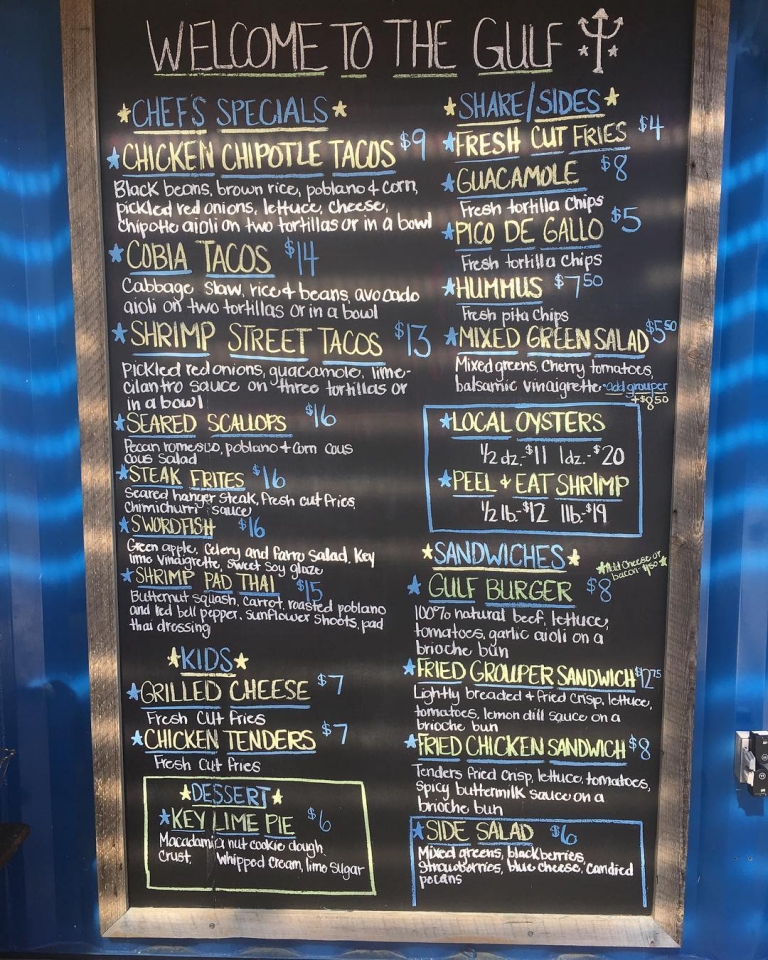 WELCOME TO THE GULF
CHEFS SPECIALS
CHICKEN CHIPOTLE TACOS $9
Black beans, brown rice, poblano & corn,
pickled red onions, lettuce, cheese,
Chipotle aioli on two tortillas or in a bowl
COBIA TACOS $14
Cabbage slaw, rice & beans, avocado
aioli on two tortillas or in a bowl
SHRIMP STREET TACOS $13
Pickled red onions, guacamole, lime-
cilantro sauce on three tortillas or
in a bowl
SEARED SCALLOPS $16
Pecan romesco, poblano & corn cous
cous salad
STEAK FRITES $16
Seared hanger steak, fresh cut fries,
Chimichurri sauce
SWORDFISH $16
Green apple, celery and farro salad, key
lime vinaigrette, sweet soy glaze
SHRIMP PAD THAI $15
Butternut squash, carrot, roasted poblano
and red bell pepper, sunflower shoots, pad
thai dressing
KIDS
GRILLED CHEESE $7
Fresh cut fries
CHICKEN TENDERS $7
Fresh cut fries
DESSERT
KEY LIME PIE $6
Macadamia nut cookie dough
crust. Whipped cream, lime sugar
SHARE/SIDES
FRESH CUT FRIES $4
GUACAMOLE $8
Fresh tortilla chips
PICO DE GALLO $5
Fresh tortilla chips
HUMMUS $7.50
Fresh pita chips
MIXED GREEN SALAD $5.50
Mixed greens, cherry tomatoes,
balsamic vinaigrette - add grouper
+$8.50
LOCAL OYSTERS
1/2 dz.-$11 1dz.-$20
PEEL & EAT SHRIMP
1/2 lb-$12 1lb-$19
SANDWICHES
Add cheese or
bacon $.50
GULF BURGER $8
100% natural beef, lettuce,
tomatoes, garlic aioli on a
brioche bun
FRIED GROUPER SANDWICH $12.75
Lightly breaded & fried crisp, lettuce,
tomatoes, lemon dill sauce on a
brioche bun
FRIED CHICKEN SANDWICH $8
Tenders fried crisp, lettuce, tomatoes,
spicy buttermilk sauce on a
brioche bun
SIDE SALAD $6
Mixed greens, blackberries,
strawberries, blue cheese, candied
pecans